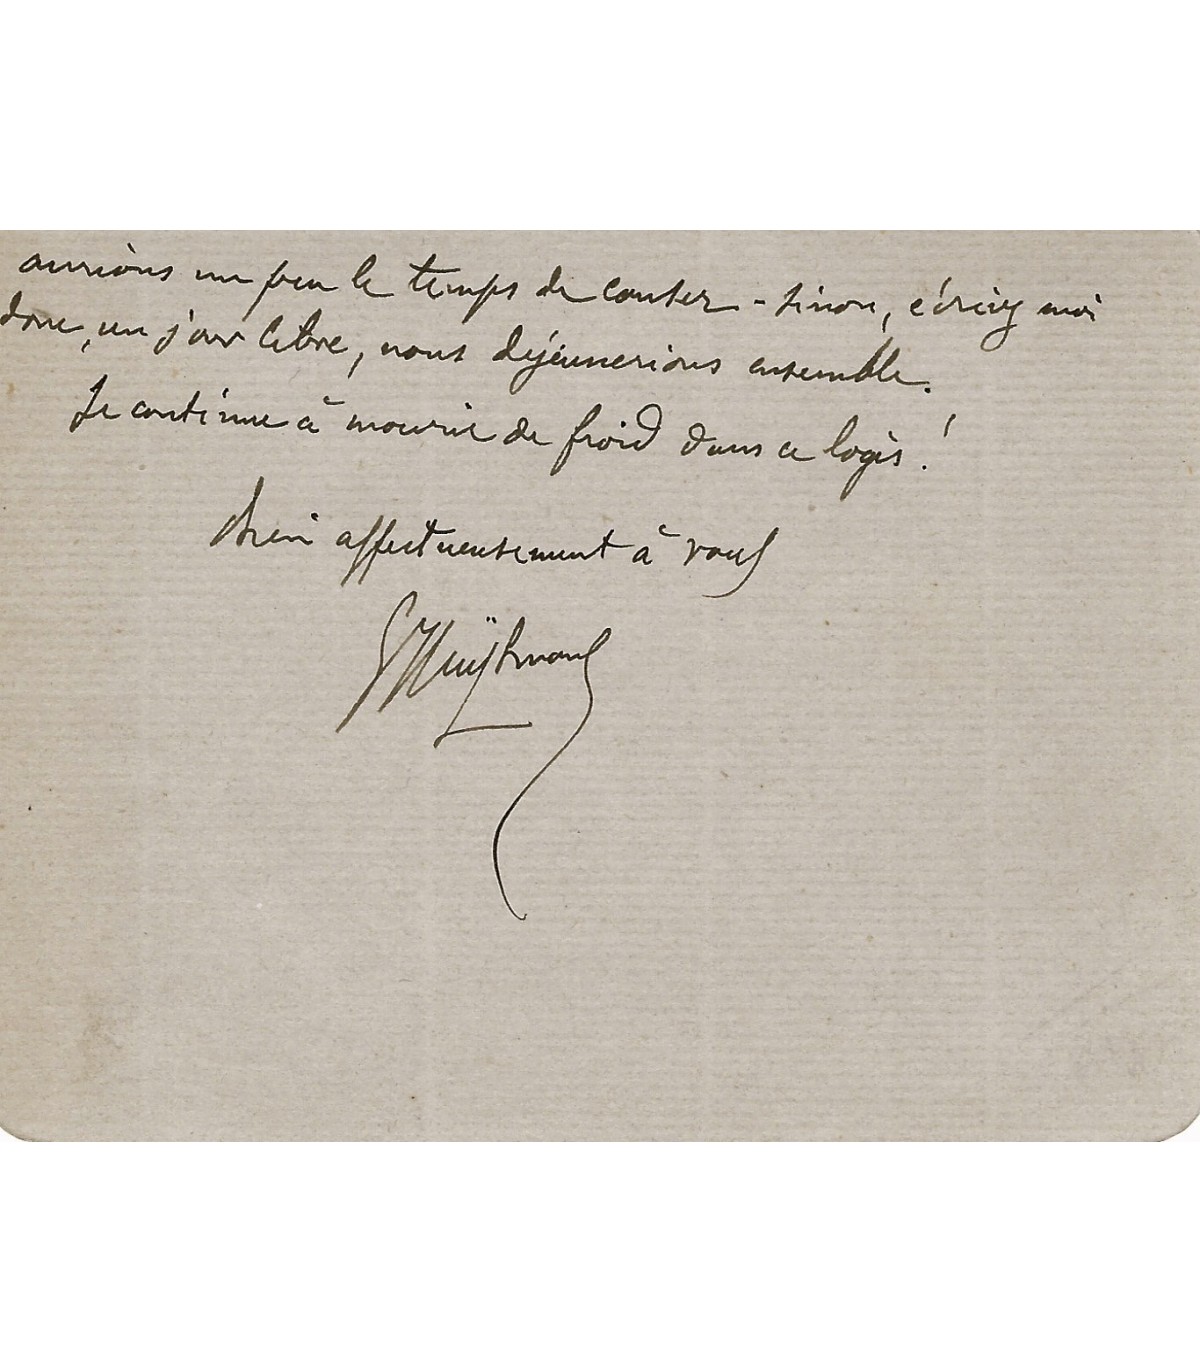 aurions un peu le temps de causer - sinon, écrivez moi
donc, un jour libre, nous déjeunerions ensemble.
Je continue à mourir de froid dans ce logis !
Bien affectueusement à vous
G Huÿsmans